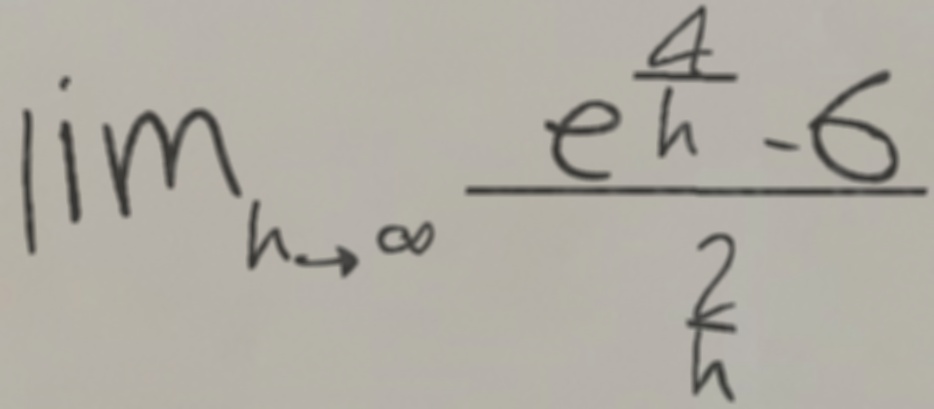 \lim_{h \to \infty} \frac{e^{\frac{4}{h}} - 6}{\frac{2}{h}}